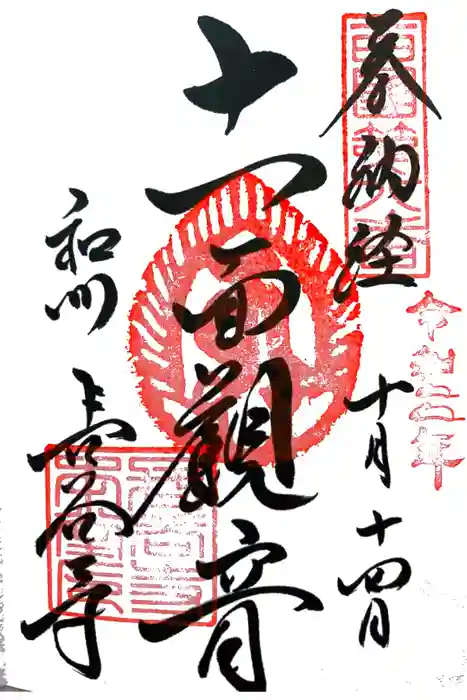 奉納経
令和二年
十月十四日
十一面觀音
和州
長谷寺